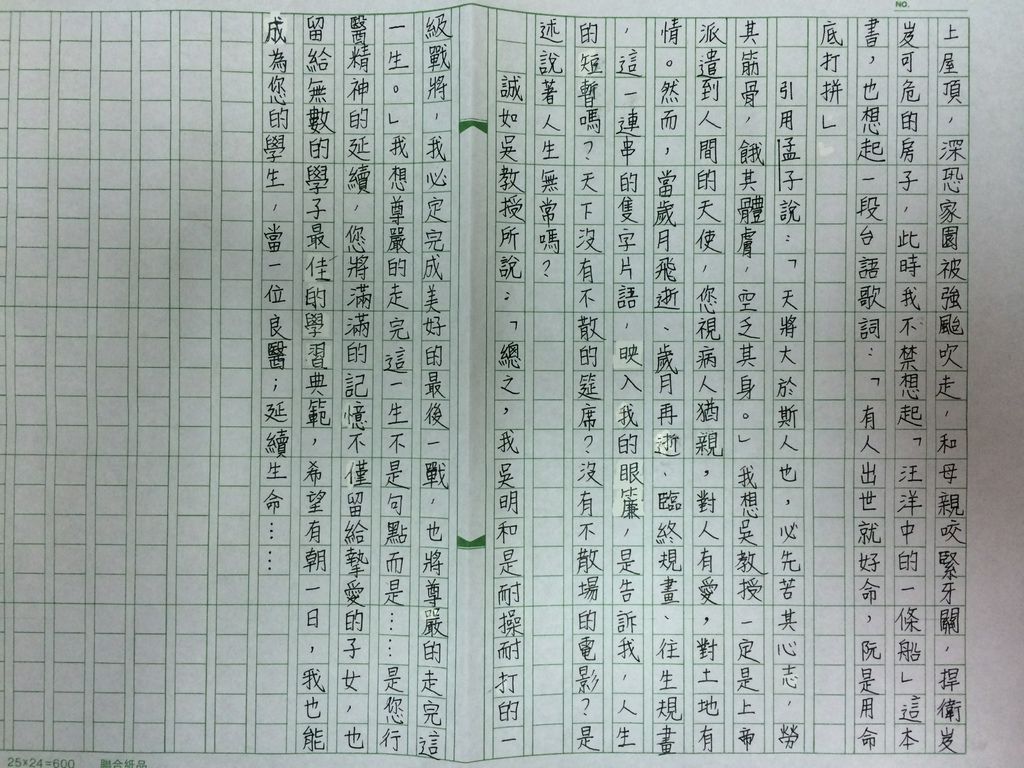 NO.
上屋頂，深恐家園被強颱吹走，和母親咬緊牙關，捍衛岌
岌可危的房子，此時我不禁想起「汪洋中的一條船」這本
書，也想起一段台語歌詞：「有人出世就好命，阮是用命
底打拼」
引用孟子說：「天將大於斯人也，必先苦其心志，勞
其筋骨，餓其體膚，空乏其身。」我想吳教授一定是上帝
派遣到人間的天使，您視病人猶親，對人有愛，對土地有
情。然而，當歲月飛逝、歲月再逝、臨終規畫、往生規畫
，這一連串的隻字片語，映入我的眼簾，是告訴我，人生
的短暫嗎？天下沒有不散的筵席？沒有不散場的電影？是
述說著人生無常嗎？
誠如吳教授所說：「總之，我吳明和是耐操耐打的一
級戰將，我必定完成美好的最後一戰，也將尊嚴的走完這
一生。」我想尊嚴的走完這一生不是句點而是……是您行
醫精神的延續，您將滿滿的記憶不僅留給摯愛的子女，也
留給無數的學子最佳的學習典範，希望有朝一日，我也能
成為您的學生，當一位良醫；延續生命……
25×24=600 聯合紙品